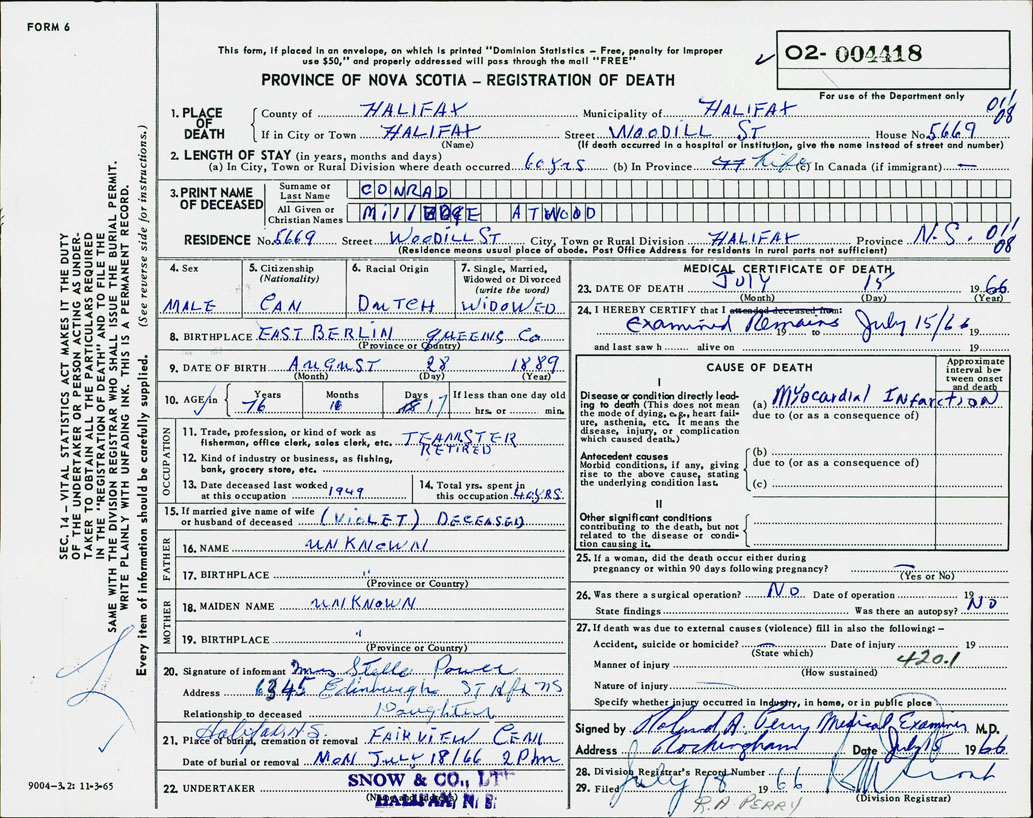 FORM 6
This form, if placed in an envelope, on which is printed "Dominion Statistics – Free, penalty for improper
use $50," and properly addressed will pass through the mail "FREE"
PROVINCE OF NOVA SCOTIA – REGISTRATION OF DEATH
02- 004418
For use of the Department only
1. PLACE OF DEATH
County of HALIFAX Municipality of HALIFAX 011/08
If in City or Town HALIFAX Street WOODILL ST House No. 5669
(Name) (If death occurred in a hospital or institution, give the name instead of street and number)
2. LENGTH OF STAY (in years, months and days)
(a) In City, Town or Rural Division where death occurred 60 yrs (b) In Province 77 life (c) In Canada (if immigrant) —
3. PRINT NAME OF DECEASED
Surname or Last Name CONRAD
All Given or Christian Names MILLEDGE ATWOOD
RESIDENCE No. 5669 Street WOODILL ST City, Town or Rural Division HALIFAX Province N.S. 011/08
(Residence means usual place of abode. Post Office Address for residents in rural parts not sufficient)
4. Sex
MALE
5. Citizenship
(Nationality)
CAN
6. Racial Origin
DUTCH
7. Single, Married,
Widowed or Divorced
(write the word)
WIDOWED
8. BIRTHPLACE EAST BERLIN QUEENS Co
(Province or Country)
9. DATE OF BIRTH AUGUST 28 1889
(Month) (Day) (Year)
10. AGE in Years Months Days If less than one day old
76 17 hrs. or min.
OCCUPATION
11. Trade, profession, or kind of work as
fisherman, office clerk, sales clerk, etc. TEAMSTER
RETIRED
12. Kind of industry or business, as fishing,
bank, grocery store, etc.
13. Date deceased last worked
at this occupation 1949
14. Total yrs. spent in
this occupation 40 YRS.
15. If married give name of wife
or husband of deceased (VIOLET) DECEASED
FATHER
16. NAME UNKNOWN
17. BIRTHPLACE "
(Province or Country)
MOTHER
18. MAIDEN NAME UNKNOWN
19. BIRTHPLACE "
(Province or Country)
20. Signature of informant Mrs Stella Power
Address 6345 Edinburgh ST Hfx NS
Relationship to deceased Daughter
Halifax N.S.
21. Place of burial, cremation or removal FAIRVIEW CEM
Date of burial or removal MON July 18/66 2 Pm
22. UNDERTAKER SNOW & CO., LTD
(Name and address)
HALIFAX, N. S.
MEDICAL CERTIFICATE OF DEATH
23. DATE OF DEATH JULY 15 1966
(Month) (Day) (Year)
24. I HEREBY CERTIFY that I attended deceased from:
Examined Remains July 15/66
19 to 19
and last saw h alive on 19
CAUSE OF DEATH
Approximate interval between onset and death
I
Disease or condition directly leading to death (This does not mean the mode of dying, e.g., heart failure, asthenia, etc. It means the disease, injury, or complication which caused death.)
(a) Myocardial INFARCTION
due to (or as a consequence of)
Antecedent causes
Morbid conditions, if any, giving rise to the above cause, stating the underlying condition last.
(b)
due to (or as a consequence of)
(c)
II
Other significant conditions
contributing to the death, but not related to the disease or condition causing it.
25. If a woman, did the death occur either during
pregnancy or within 90 days following pregnancy? —
(Yes or No)
26. Was there a surgical operation? NO Date of operation 19
State findings Was there an autopsy? NO
27. If death was due to external causes (violence) fill in also the following: –
Accident, suicide or homicide? — Date of injury 19
(State which) 420.1
Manner of injury
(How sustained)
Nature of injury
Specify whether injury occurred in industry, in home, or in public place
Signed by Roland A. Perry Medical Examiner M.D.
Address Rockingham Date July 15 1966
28. Division Registrar's Record Number
29. Filed July 18 1966
(Division Registrar)
R.A. PERRY
SEC. 14 – VITAL STATISTICS ACT MAKES IT THE DUTY
OF THE UNDERTAKER OR PERSON ACTING AS UNDER-
TAKER TO OBTAIN ALL THE PARTICULARS REQUIRED
IN THE "REGISTRATION OF DEATH" AND TO FILE THE
SAME WITH THE DIVISION REGISTRAR WHO SHALL ISSUE THE BURIAL PERMIT.
WRITE PLAINLY WITH UNFADING INK. THIS IS A PERMANENT RECORD.
Every item of information should be carefully supplied. (See reverse side for instructions.)
9004–3.2: 11-3-65